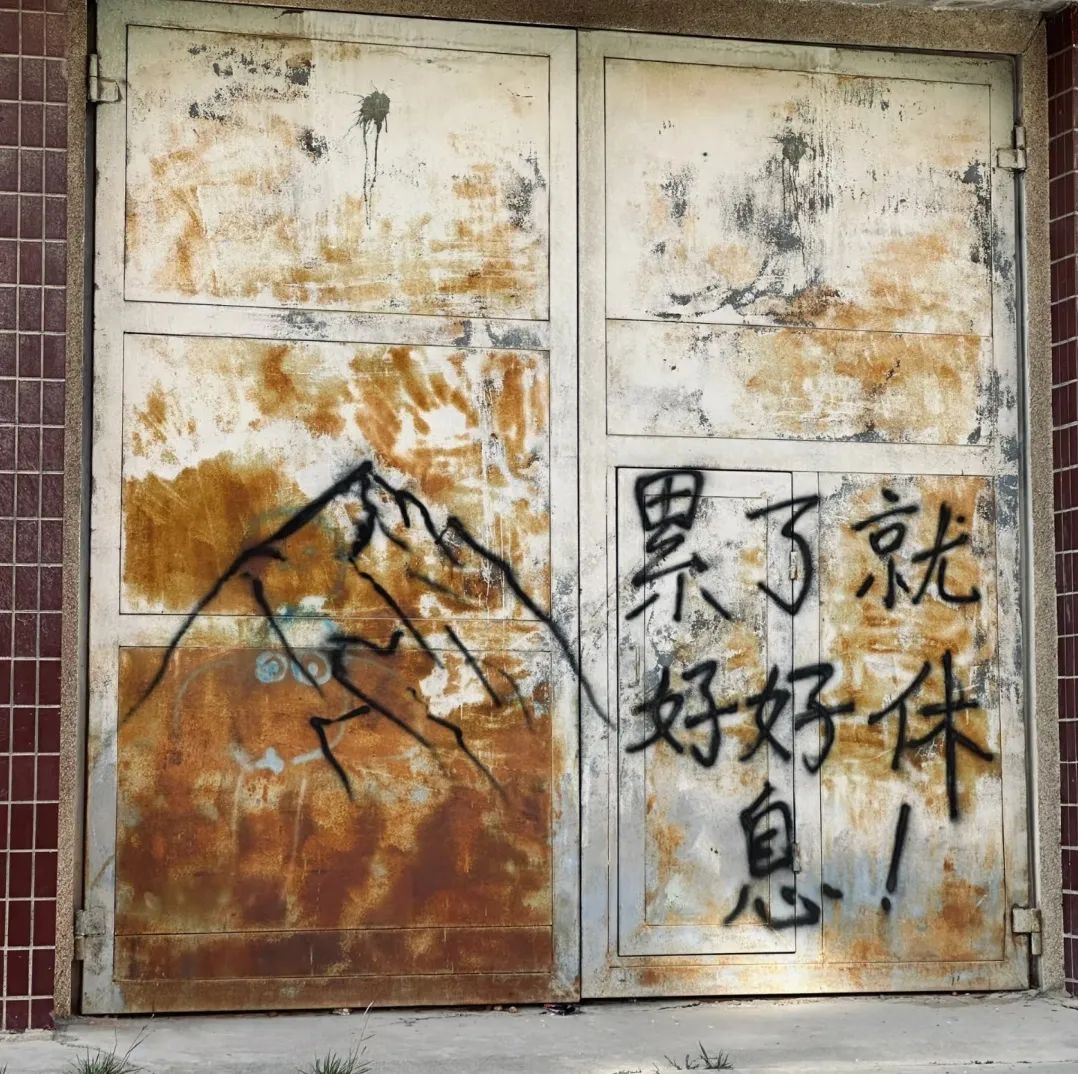 累了就
好好休
息！